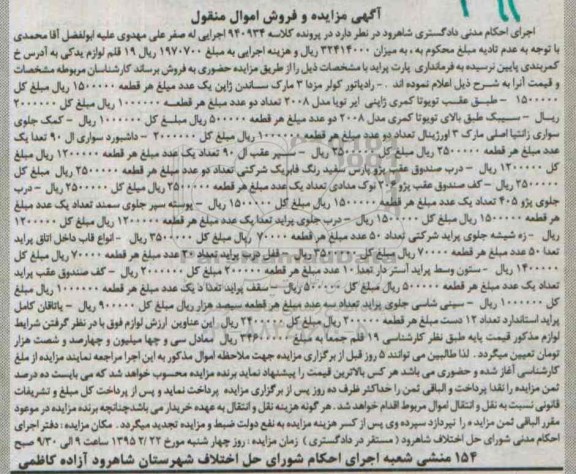 آگهی مزایده و فروش اموال منقول
اجرای احکام مدنی دادگستری شاهرود در نظر دارد در پرونده کلاسه ۹۴۰۹۳۴ اجرایی له صفر علی مهدوی علیه ابوالفضل آقا محمدی
با توجه به عدم تادیه مبلغ محکوم به ، به میزان ۳۲۴۱۴۰۰۰ ریال و هزینه اجرایی به مبلغ ۱۹۷۰۷۰۰ ریال ۱۹ قلم لوازم یدکی به آدرس خ
کمربندی پایین نرسیده به فرمانداری پارت پراید با مشخصات ذیل را از طریق مزایده حضوری به فروش برساند کارشناسان مربوطه مشخصات
و قیمت آنرا به شرح ذیل اعلام نموده اند . - رادیاتور کولر مزدا ۳ مارک ساندن ژاپن یک عدد مبلغ هر قطعه ۱۵۰۰۰۰۰ ریال مبلغ کل
۱۵۰۰۰۰۰ - طبق عقب تویوتا کمری ژاپنی ایر تویا مدل ۲۰۰۸ تعداد دو عدد مبلغ هر قطعه ۱۰۰۰۰۰۰ ریال مبلغ کل ۲۰۰۰۰۰۰
ریال - سیبک طبق بالای تویوتا کمری مدل ۲۰۰۸ دو عدد مبلغ هر قطعه ۵۰۰۰۰۰ ریال مبلغ کل ۱۰۰۰۰۰۰ ریال - کمک جلوی
سواری زانتیا اصلی مارک ۳ اورژینال تعداد دو عدد مبلغ هر قطعه ۱۰۰۰۰۰۰ ریال مبلغ کل ۲۰۰۰۰۰۰ - داشبورد سواری ال ۹۰ تعدا یک
عدد مبلغ هر قطعه ۳۵۰۰۰۰۰ ریال مبلغ کل ۳۵۰۰۰۰۰ ریال - سپر عقب ال ۹۰ تعداد یک عدد مبلغ هر قطعه ۱۲۰۰۰۰۰ ریال مبلغ
کل ۱۲۰۰۰۰۰ ریال - درب صندوق عقب پژو پارس سفید رنگ فابریک شرکتی تعداد دو عدد مبلغ هر قطعه ۲۵۰۰۰۰۰ ریال مبلغ کل
۲۵۰۰۰۰۰ ریال - کف صندوق عقب پژو ۲۰۶ نوک مدادی تعداد یک عدد مبلغ هر قطعه ۲۵۰۰۰۰۰ ریال مبلغ کل ۲۵۰۰۰۰۰ ریال - درب
جلوی پژو ۴۰۵ تعداد یک عدد مبلغ هر قطعه ۱۵۰۰۰۰۰ ریال مبلغ کل ۱۵۰۰۰۰۰ ریال - پوسته سپر جلوی سمند تعداد یک عدد مبلغ
هر قطعه ۱۵۰۰۰۰۰ ریال مبلغ کل ۱۵۰۰۰۰۰ ریال - درب جلوی پراید تعدا یک عدد مبلغ هر قطعه ۱۲۰۰۰۰۰ ریال مبلغ کل ۱۲۰۰۰۰۰
ریال - زه شیشه جلوی پراید شرکتی تعداد ۵۰ عدد مبلغ هر قطعه ۷۰۰۰۰ ریال مبلغ کل ۳۵۰۰۰۰۰ ریال - انواع قاب داخل اتاق پراید
تعدا ۵۰ عدد مبلغ هر قطعه ۷۰۰۰۰ ریال مبلغ کل ریال - قفل درب پراید تعداد ۲۰ عدد مبلغ هر قطعه ۷۰۰۰۰ ریال مبلغ کل
۱۴۰۰۰۰۰ ریال - ستون وسط پراید آستر دار تعدا ۱۰ عدد مبلغ هر قطعه ۲۰۰۰۰۰ مبلغ کل ۲۰۰۰۰۰۰ ریال - کف صندوق عقب پراید
تعداد یک عدد مبلغ هر قطعه ۵۰۰۰۰۰ ریال مبلغ کل ۵۰۰۰۰۰ ریال - سقف پراید تعدا دیک عدد مبلغ هر قطعه ۱۰۰۰۰۰۰ ریال مبلغ
کل ۱۰۰۰۰۰۰ ریال - سینی شاسی جلوی پراید تعداد سه عدد مبلغ هر قطعه سیصد هزار ریال مبلغ کل ۹۰۰۰۰۰ ریال - یاتاقان کامل
پراید استاندارد تعداد ۱۲ دست مبلغ هر قطعه ۲۰۰۰۰۰ ریال مبلغ کل ۲۴۰۰۰۰۰ ریال . این عناوین ارزش لوازم فوق با در نظر گرفتن شرایط
لوازم مذکور قیمت پایه طبق نظر کارشناسی ۱۹ قلم جمعا به مبلغ ریال معادل سی و چهار میلیون و چهارصد و شصت هزار
تومان تعیین میگردد . لذا طالبین می توانند ۵ روز قبل از برگزاری مزایده جهت ملاحظه اموال مذکور به این اجرا مراجعه نمایند مزایده از ملغ
کارشناسی آغاز شده و حضوری می باشد هر کس بالاترین قیمت را پیشنهاد نماید برنده مزایده محسوب خواهد شد که می بایست ده درصد
ثمن مزایده را نقدا پرداخت و الباقی ثمن را حداکثر ظرف ده روز پس از برگزاری مزایده پرداخت نماید و پس از پرداخت کل مبلغ و تشریفات
قانونی نسبت به نقل و انتقال اموال مربوط اقدام خواهد شد . هر گونه هزینه نقل و انتقال به عهده خریدار می باشد چنانچه برنده مزایده در موعود
مقرر الباقی ثمن مزایده را نپردازد سپرده وی پس از کسر هزینه مزایده به نفع دولت ضبط و مزایده تجدید میگردد . مکان مزایده : دفتر اجرای
احکام مدنی شورای حل اختلاف شاهرود ( مستقر در دادگستری ) زمان مزایده : روز چهار شنبه مورخ ۱۳۹۵/۲/۲۲ ساعت ۹ الی ۹/۳۰ صبح
۱۵۴ منشی شعبه اجرای احکام شورای حل اختلاف شهرستان شاهرود آزاده کاظمی